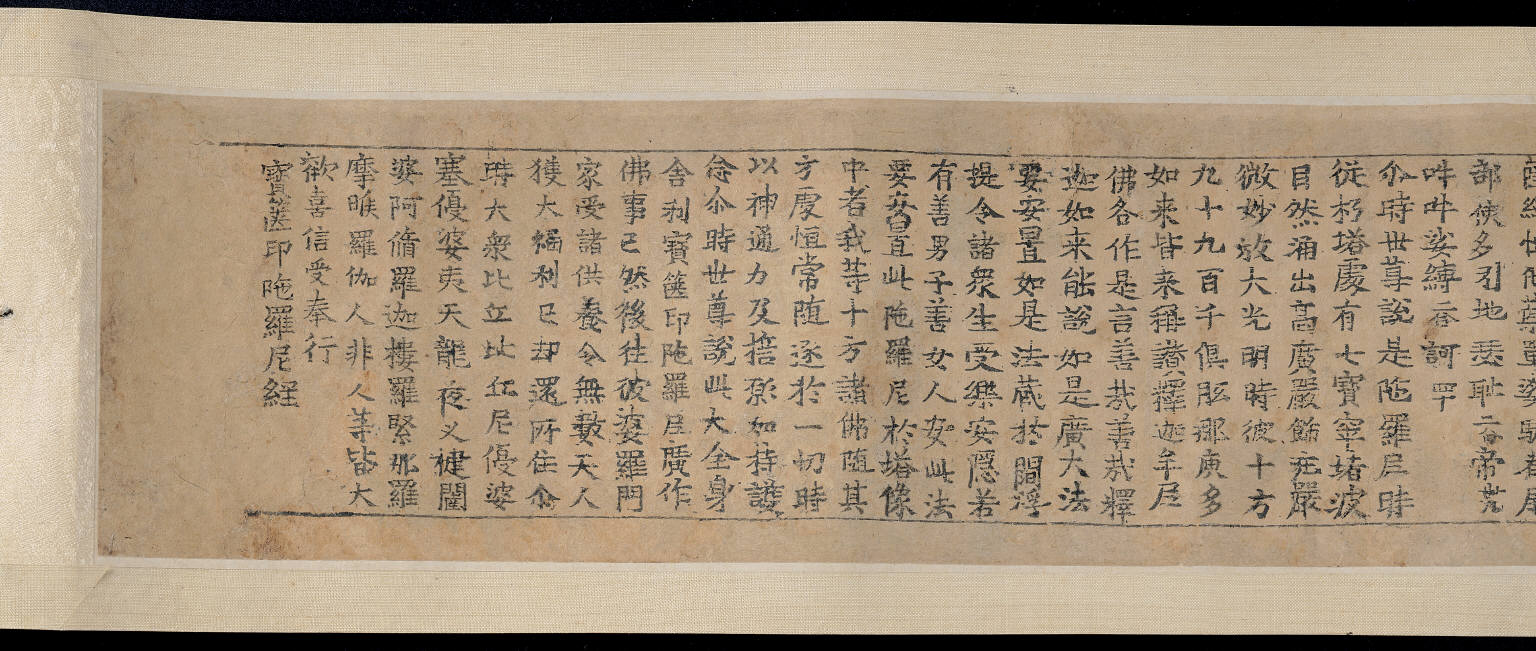 部使多引地瑟恥二合帝
吽吽娑縛二合訶四十
尒時世尊說是陁羅尼時
從朽塔處有七寶窣堵波
自然涌出高廣嚴飾莊嚴
微妙放大光明時彼十方
九十九百千俱胝那庾多
如来皆来稱讚釋迦牟尼
佛各作是言善哉善哉釋
迦如来能說如是廣大法
要安置如是法藏於閻浮
提令諸衆生受樂安隱若
有善男子善女人安此法
要安置此陁羅尼於塔像
中者我等十方諸佛随其
方處恒常随逐於一切時
以神通力及誓願如持護
念尒時世尊說此大全身
舍利寶篋印陁羅尼廣作
佛事已然後往彼婆羅門
家受諸供養令無數天人
獲大福利已却還所住尒
時大衆比丘比丘尼優婆
塞優婆夷天龍夜叉揵闥
婆阿脩羅迦樓羅緊那羅
摩睺羅伽人非人等皆大
歡喜信受奉行
寶篋印陁羅尼經